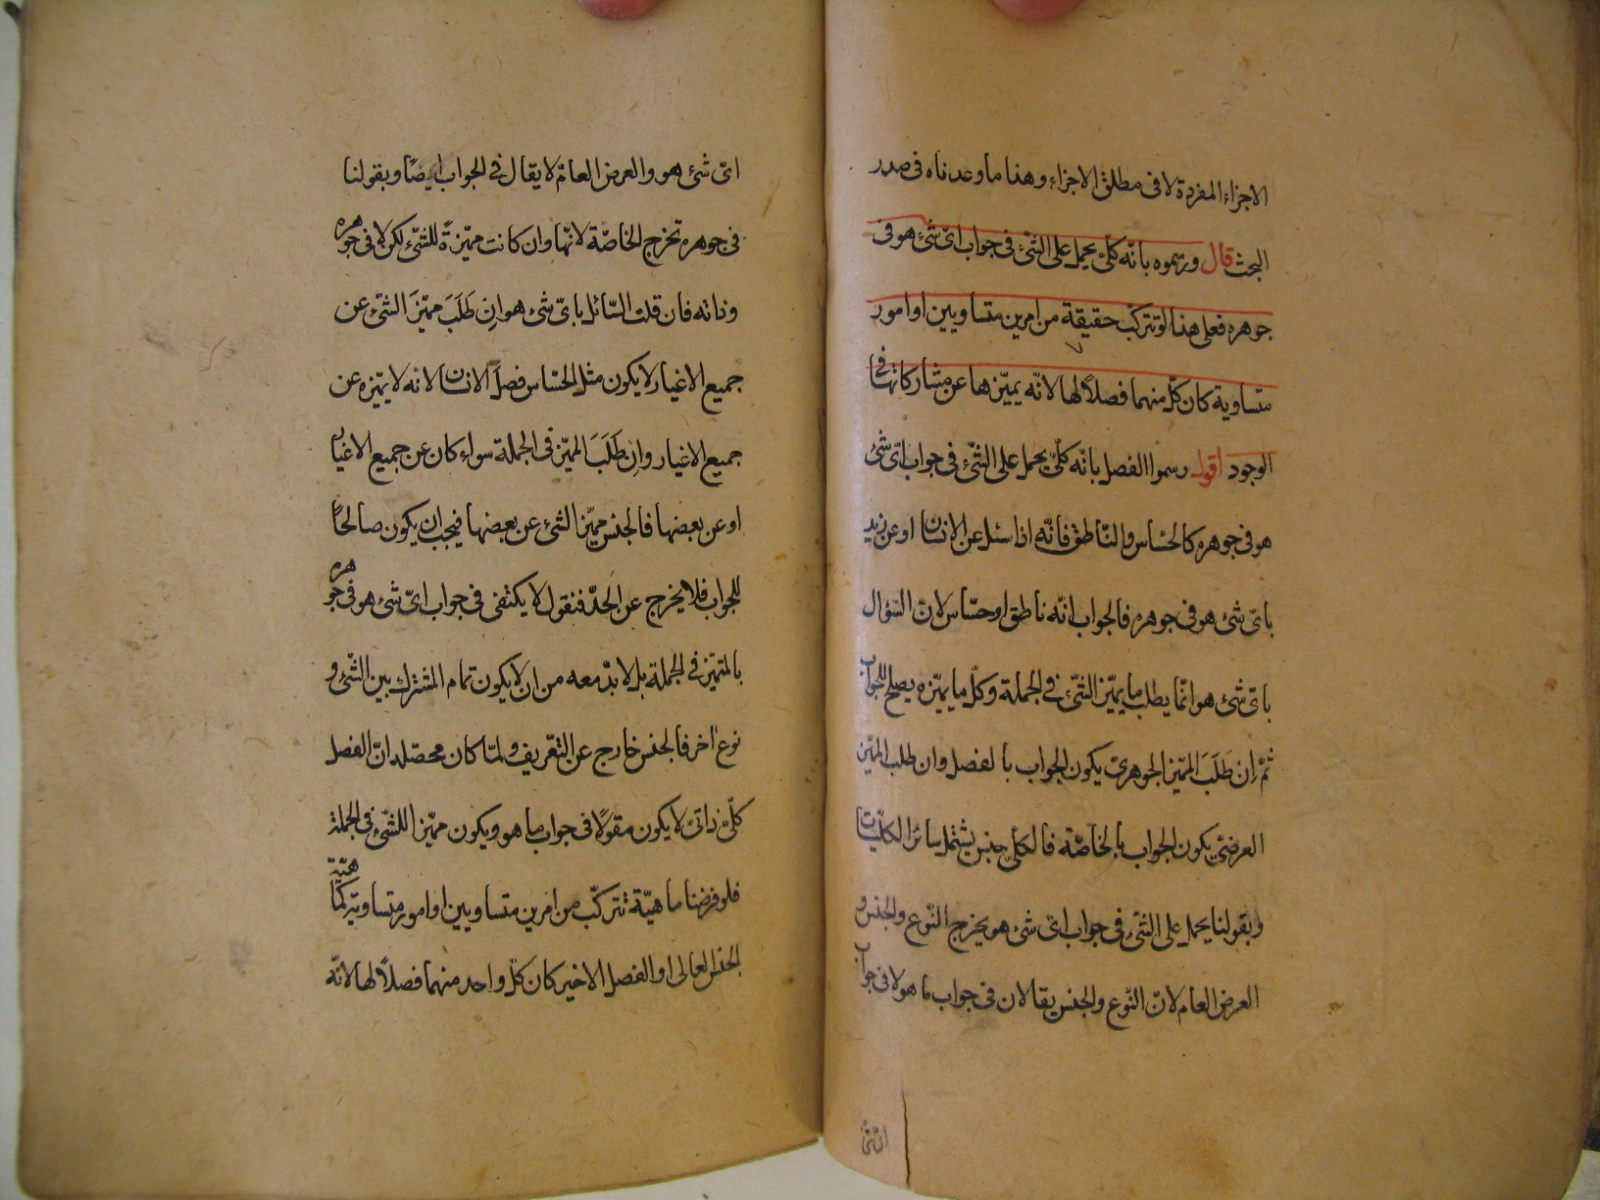 الاجزاء المفردة لا فى مطلق الاجزاء وهذا ما وعدناه فى صدر
البحث قال ورسموه بانّه كلىّ يحمل على الشئ فى جواب اىّ شئ هو فى
جوهره فعلى هذا لو تركّب حقيقة من امرين متساويين او امور
متساوية كان كلّ منهما فصلاً لها لانّه يميّزها عن مشاركاتها فى
الوجود اقول رسموا الفصل بانّه كلىّ يحمل على الشئ فى جواب اىّ شئ
هو فى جوهره كالحسّاس والنّاطق فانّه اذا سئل عن الانسان او عن زيد
باىّ شئ هو فى جوهره فالجواب انّه ناطق او حسّاس لانّ السّؤال
باىّ شئ هو انّما يطلب ما يميّز الشّئ فى الجملة وكلّ ما يميّزه يصلح للجواب
ثمّ اِن طَلَبَ المميّز الجوهرىّ يكون الجواب بالفصل وان طلب المميّز
العرضىّ يكون الجواب بالخاصّة فالكلىّ جنس يشتمل سائر الكلّيّات
وبقولنا يحمل على الشّئ فى جواب اىّ شئ هو يخرج النّوع والجنس و
العرض العام لانّ النّوع والجنس يقالان فى جواب ما هو لا فى جواب
اىّ شئ
اىّ شئ هو والعرض العامّ لا يقال فى الجواب ايضًا وبقولنا
فى جوهره تخرج الخاصّة لانّها وان كانت مميّزةً للشّئ لكن لا فى جوهره
وذاته فان قلت السّائل باىّ شئ هو اِن طَلَبَ مميّزَ الشئ عن
جميع الاغيار لا يكون مثل الحسّاس فصلَ الانسان لانّه لا يميّزه عن
جميع الاغيار واِن طَلَبَ المميّز فى الجملة سواء كان عن جميع الاغيار
او عن بعضها فالجنس مميّز الشئ عن بعضها فيجب ان يكون صالحًا
للجواب فلا يخرج عن الحدّ فنقول لا يكتفى فى جواب اىّ شئ هو فى جوهره
بالتميّز فى الجملة بل لا بدّ معه من ان لا يكون تمام المشترك بين الشّئ و
نوع اخر فالجنس خارج عن التّعريف ولمّا كان محصّله انّ الفصل
كلىّ ذاتىّ لا يكون مقولاً فى جواب ما هو ويكون مميّزا للشّئ فى الجملة
فلو فرضنا ماهيّة تتركّب من امرين متساويين او امور متساوية كماهيّة
الجنس العالى او الفصل الاخير كان كلّ واحد منهما فصلاً لها لانّه